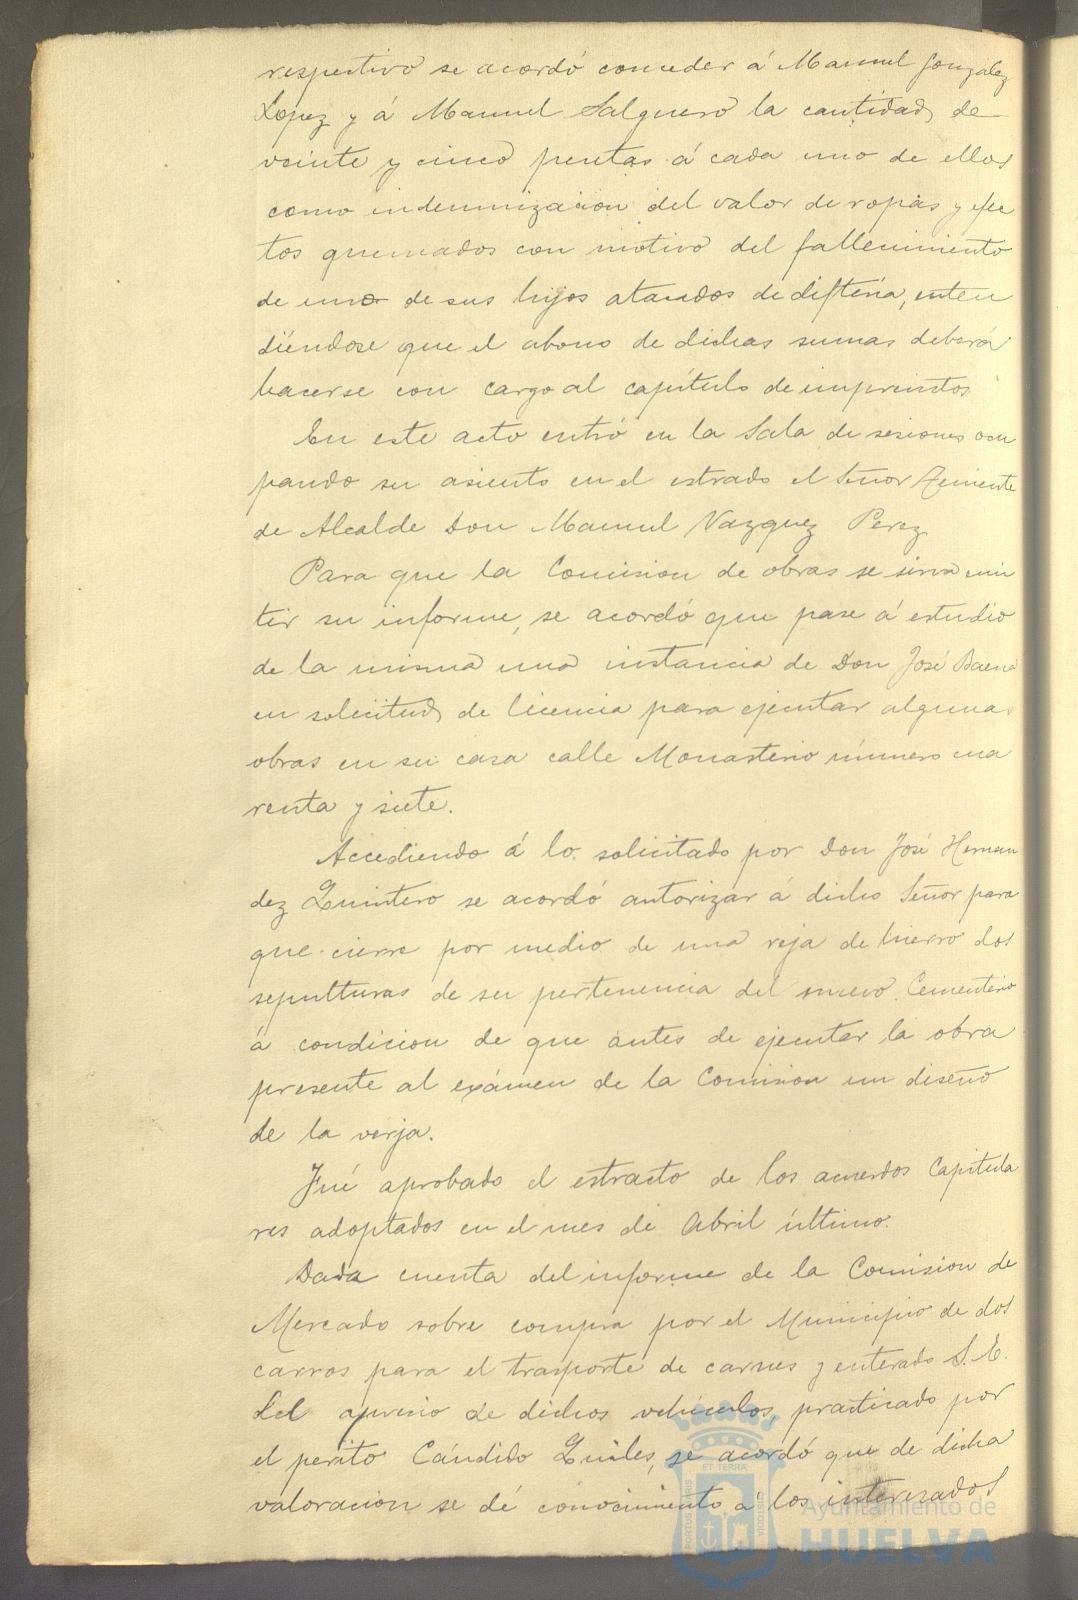 respectivo se acordó conceder á Manuel Gonzalez
Lopez y á Manuel Salguero la cantidad de
veinte y cinco pesetas á cada uno de ellos
como indemnizacion del valor de ropas y efec
tos quemados con motivo del fallecimiento
de uno de sus hijos atacados de difteria, enten
diéndose que el abono de dichas sumas deberá
hacerse con cargo al capítulo de imprevistos.
En este acto entró en la Sala de sesiones ocu
pando su asiento en el estrado el Señor Teniente
de Alcalde Don Manuel Vazquez Perez
Para que la Comision de obras se sirva emi
tir su informe, se acordó que pase á estudio
de la misma una instancia de Don José Baena
en solicitud de licencia para ejecutar algunas
obras en su casa calle Monasterio número cua
renta y siete.
Accediendo á lo solicitado por Don José Hernan
dez Quintero se acordó autorizar á dicho Señor para
que cierre por medio de una reja de hierro dos
sepulturas de su pertenencia del nuevo Cementerio
á condicion de que antes de ejecutar la obra
presente al exámen de la Comision un diseño
de la verja.
Fué aprobado el estracto de los acuerdos Capitula
res adoptados en el mes de Abril último.
Dada cuenta del informe de la Comision de
Mercado sobre compra por el Municipio de dos
carros para el trasporte de carnes y enterado S. E.
del aprecio de dichos vehículos, practicado por
el perito Cándido Quiles, se acordó que de dicha
valoracion se dé conocimiento á los interesados
ET TERRÆ
PORTUS MARIS
CUSTODIA
Ayuntamiento de
HUELVA